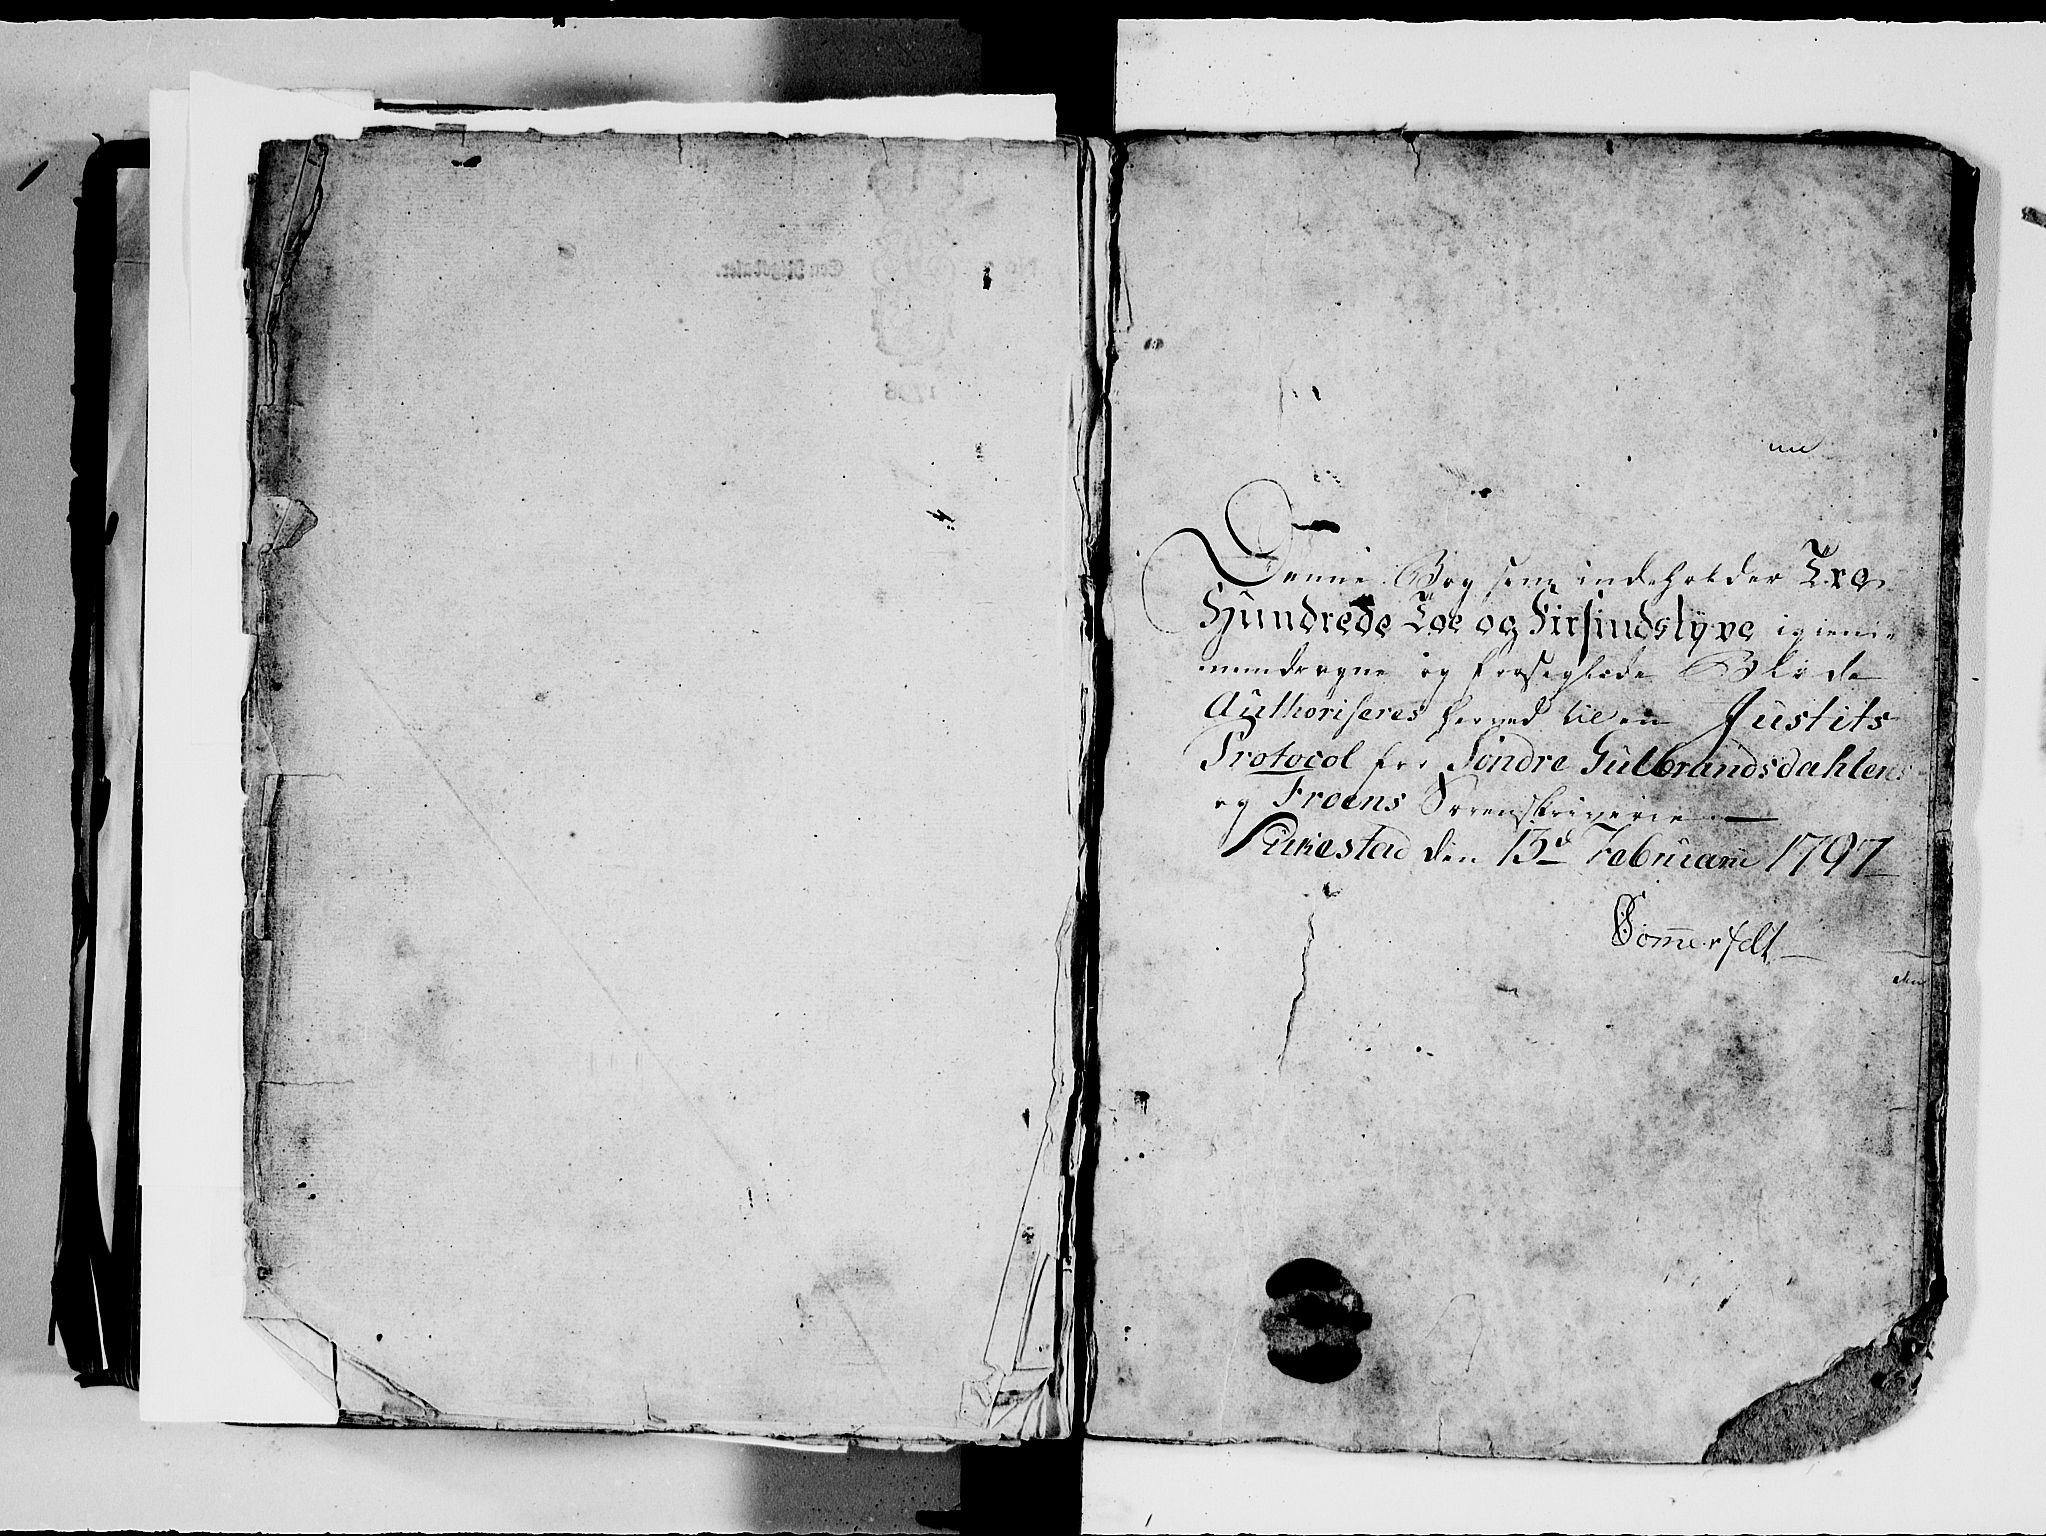 Denne Bog som indeholder Tre
Hundrede Toe og Firsindstyve igiennem-
dragne og forseglede Blade
Authoriseres herved til en Justits
Protocol for Söndre Gulbrandsdahlens
og Froens Sorenskriverie
den 13d Februarii 1797
Sommerfelt
den